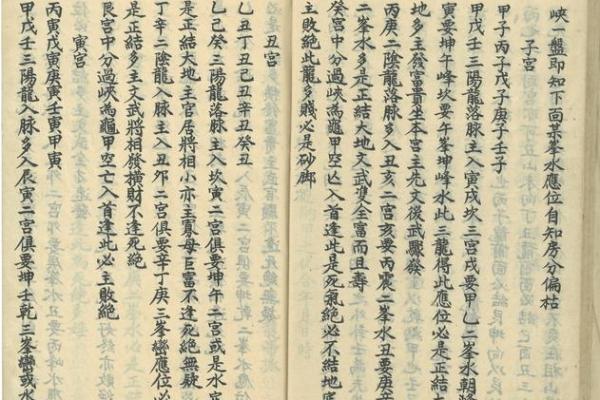 峽一盤即知下面某峯水應位自知房分偏枯
子宮
甲子丙子戊子庚子壬子
甲戊壬三陽龍落脉主入寅戌坎三宮戌要甲乙二峯水朝峰
寅要坤午峰坎要午峯坤峰水此三龍得此應位必是正結大
地多主發富貴坐本宮主先文後武驟發
丙庚二陰龍落脉多入丑亥二宮亥要丙震二峯水丑要庚辛
二峯水多是正結大地文武雙全富而且壽
癸宮中分過峽為龜甲空亡入首逢此是死氣絕必不結地
主敗絕此龍多賤必是砂脚
丑宮
乙丑丁丑己丑辛丑癸丑
乙己癸三陽龍落脉主入坎寅二宮俱要坤午二宮或是水
是正結大地主官居將相小亦主寡母巨富不逢死絕無疑
丁辛二陰龍入脉主入丑夘二宮俱要辛丁庚三峯巒應位必
是正結多主文武將相發橫財不逢死絕
艮宮中分過峽為龜甲空亡入首逢此必主敗絕
寅宮
丙寅戊寅庚寅壬寅甲寅
甲戊壬三陽龍入脉多入辰寅二宮俱要坤壬乾三峯巒或水